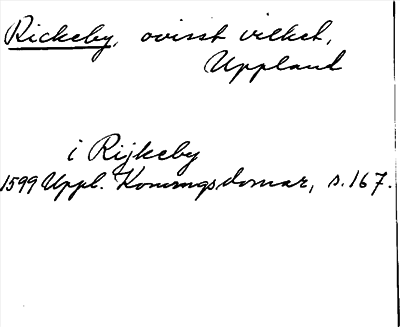 Rickeby, ovisst vilket,
Uppland
i Rijkeby
1599 Uppl. Konungsdomar, s. 167.